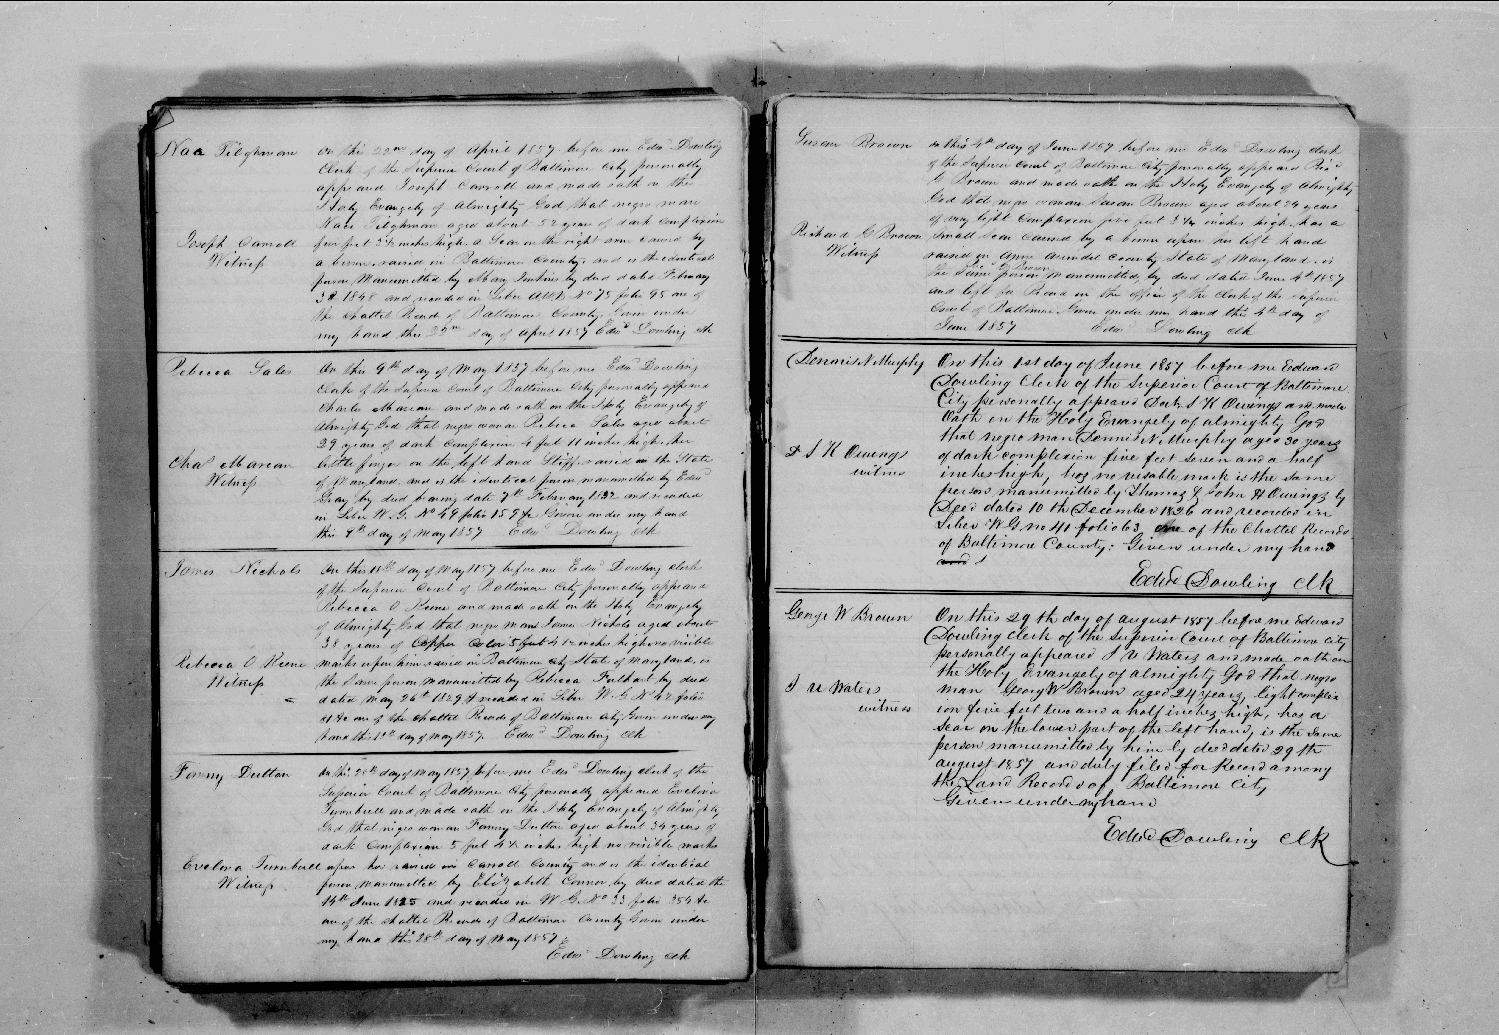 Nace Tilghman
On this 22nd day of April 1857 before me Edwd Dowling
Clerk of the Superior Court of Baltimore City personally
appeared Joseph Carroll and made oath on the
Holy Evangely of Almighty God that negro man
Nace Tilghman aged about 52 years of dark complexion
five feet 3½ inches high, a Scar on the right arm caused by
Joseph Carroll
Witness
a burn, raised in Baltimore County, and is the identical
person Manumitted by Mary Jenkins by deed dated February
3d 1848 and recorded in Liber AWB No 75 folio 95 one of
the Chattel Records of Baltimore County, Given under
my hand this 22nd day of April 1857 Edwd Dowling Clk
Rebecca Sales
On this 9th day of May 1857 before me Edwd Dowling
Clerk of the Superior Court of Baltimore City personally appeared
Charles Marean and made oath on the Holy Evangely of
Almighty God that negro woman Rebecca Sales aged about
29 years of dark complexion 4 feet 11 inches high, her
Chas Marean
Witness
little finger on the left hand Stiff, raised in the State
of Maryland, and is the identical person manumitted by Edwd
Gray by deed bearing date 7th February 1832 and recorded
in Liber W.G. No 49 folio 159 &c Given under my hand
this 9th day of May 1857 Edwd Dowling Clk
James Nichols
On this 18th day of May 1857 before me Edwd Dowling Clerk
of the Superior Court of Baltimore City personally appeared
Rebecca O Keene and made oath on the Holy Evangely
of Almighty God that negro man James Nichols aged about
38 years of Copper Color 5 feet 4½ inches high no visible
Rebecca O Keene
Witness
marks upon him raised in Baltimore City State of Maryland, is
the same person manumitted by Rebecca Fulhart by deed
dated May 26th 1829 & recorded in Liber W.G. No 42 folio
&c one of the Chattel Records of Baltimore City, Given under my
hand this 18th day of May 1857. Edwd Dowling Clk
Fanny Dutton
On this 28th day of May 1857 before me Edwd Dowling Clerk of the
Superior Court of Baltimore City personally appeared Evelina
Turnbull and made oath on the Holy Evangely of Almighty
God that negro woman Fanny Dutton aged about 34 years of
dark complexion 5 feet 4½ inches high no visible marks
Evelina Turnbull
Witness
upon her raised in Carroll County and is the identical
person manumitted by Elizabeth Connor by deed dated the
14th June 1825 and recorded in W.G. No 33 folio 354 &c
one of the Chattel Records of Baltimore County Given under
my hand this 28th day of May 1857.
Edwd Dowling Clk
Susan Brown
On this 4th day of June 1857 before me Edwd Dowling Clerk
of the Superior Court of Baltimore City personally appeared Richd
G Brown and made oath on the Holy Evangely of Almighty
God that negro woman Susan Brown aged about 24 years
of very light complexion five feet 3¼ inches high, has a
Richard G Brown
Witness
small Scar caused by a burn upon her left hand
raised in Anne Arundel County State of Maryland, is
the same person manumitted, by deed dated June 4th 1857
and left for Record in the office of the Clerk of the Superior
Court of Baltimore Given under my hand this 4th day of
June 1857 Edwd Dowling Clk
Dennis N. Murphy
On this 1st day of June 1857 before me Edward
Dowling Clerk of the Superior Court of Baltimore
City personally appeared Doct. S K Owings and made
Oath on the Holy Evangely of almighty God
that negro man Dennis N. Murphy aged 30 years
Dr S K Owings
witness
of dark complexion five feet seven and a half
inches high, has no visable mark is the same
person manumitted by Thomas & John H Owings by
Deed dated 10th December 1826 and recorded in
Liber W G no 41 folio 63 one of the Chattel Records
of Baltimore County: Given under my hand
Edwd Dowling Clk
George W Brown
On this 29th day of august 1857 before me Edward
Dowling Clerk of the Superior Court of Baltimore City
personally appeared S U Waters and made oath on
the Holy Evangely of almighty God that negro
man George W Brown aged 24 years, light complex
S U Waters
witness
ion five feet two and a half inches high, has a
scar on the lower part of the left hand, is the same
person manumitted by him by deed dated 29th
august 1857 and duly filed for Record among
the Land Records of Baltimore City
Given under my hand
Edwd Dowling Clk